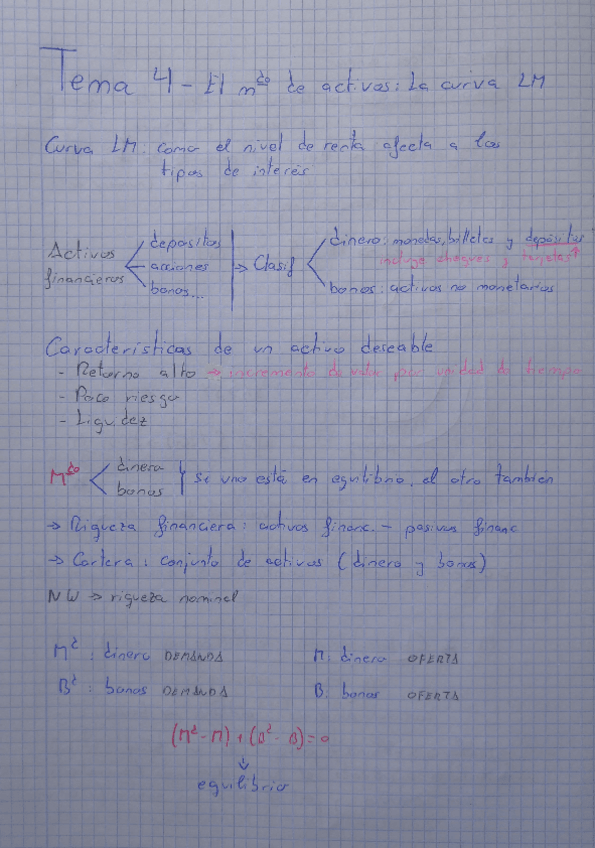 Tema 4 - El mdo de activos: La curva LM
Curva LM: como el nivel de renta afecta a los
tipos de interés
Activos financieros
depositos
acciones
bonos...
→ Clasif
dinero: monedas, billetes y depósitos
incluye cheques y tarjetas
bonos: activos no monetarios
Características de un activo deseable
- Retorno alto → incremento de valor por unidad de tiempo
- Poco riesgo
- Liquidez
Mdo
dinero
bonos
si uno está en equilibrio, el otro también
→ Riqueza financiera: activos financ. - pasivos financ
→ Cartera: conjunto de activos (dinero y bonos)
NW → riqueza nominal
Md: dinero DEMANDA M: dinero OFERTA
Bd: bonos DEMANDA B: bonos OFERTA
(Md - M) + (Bd - B) = 0
↓
equilibrio